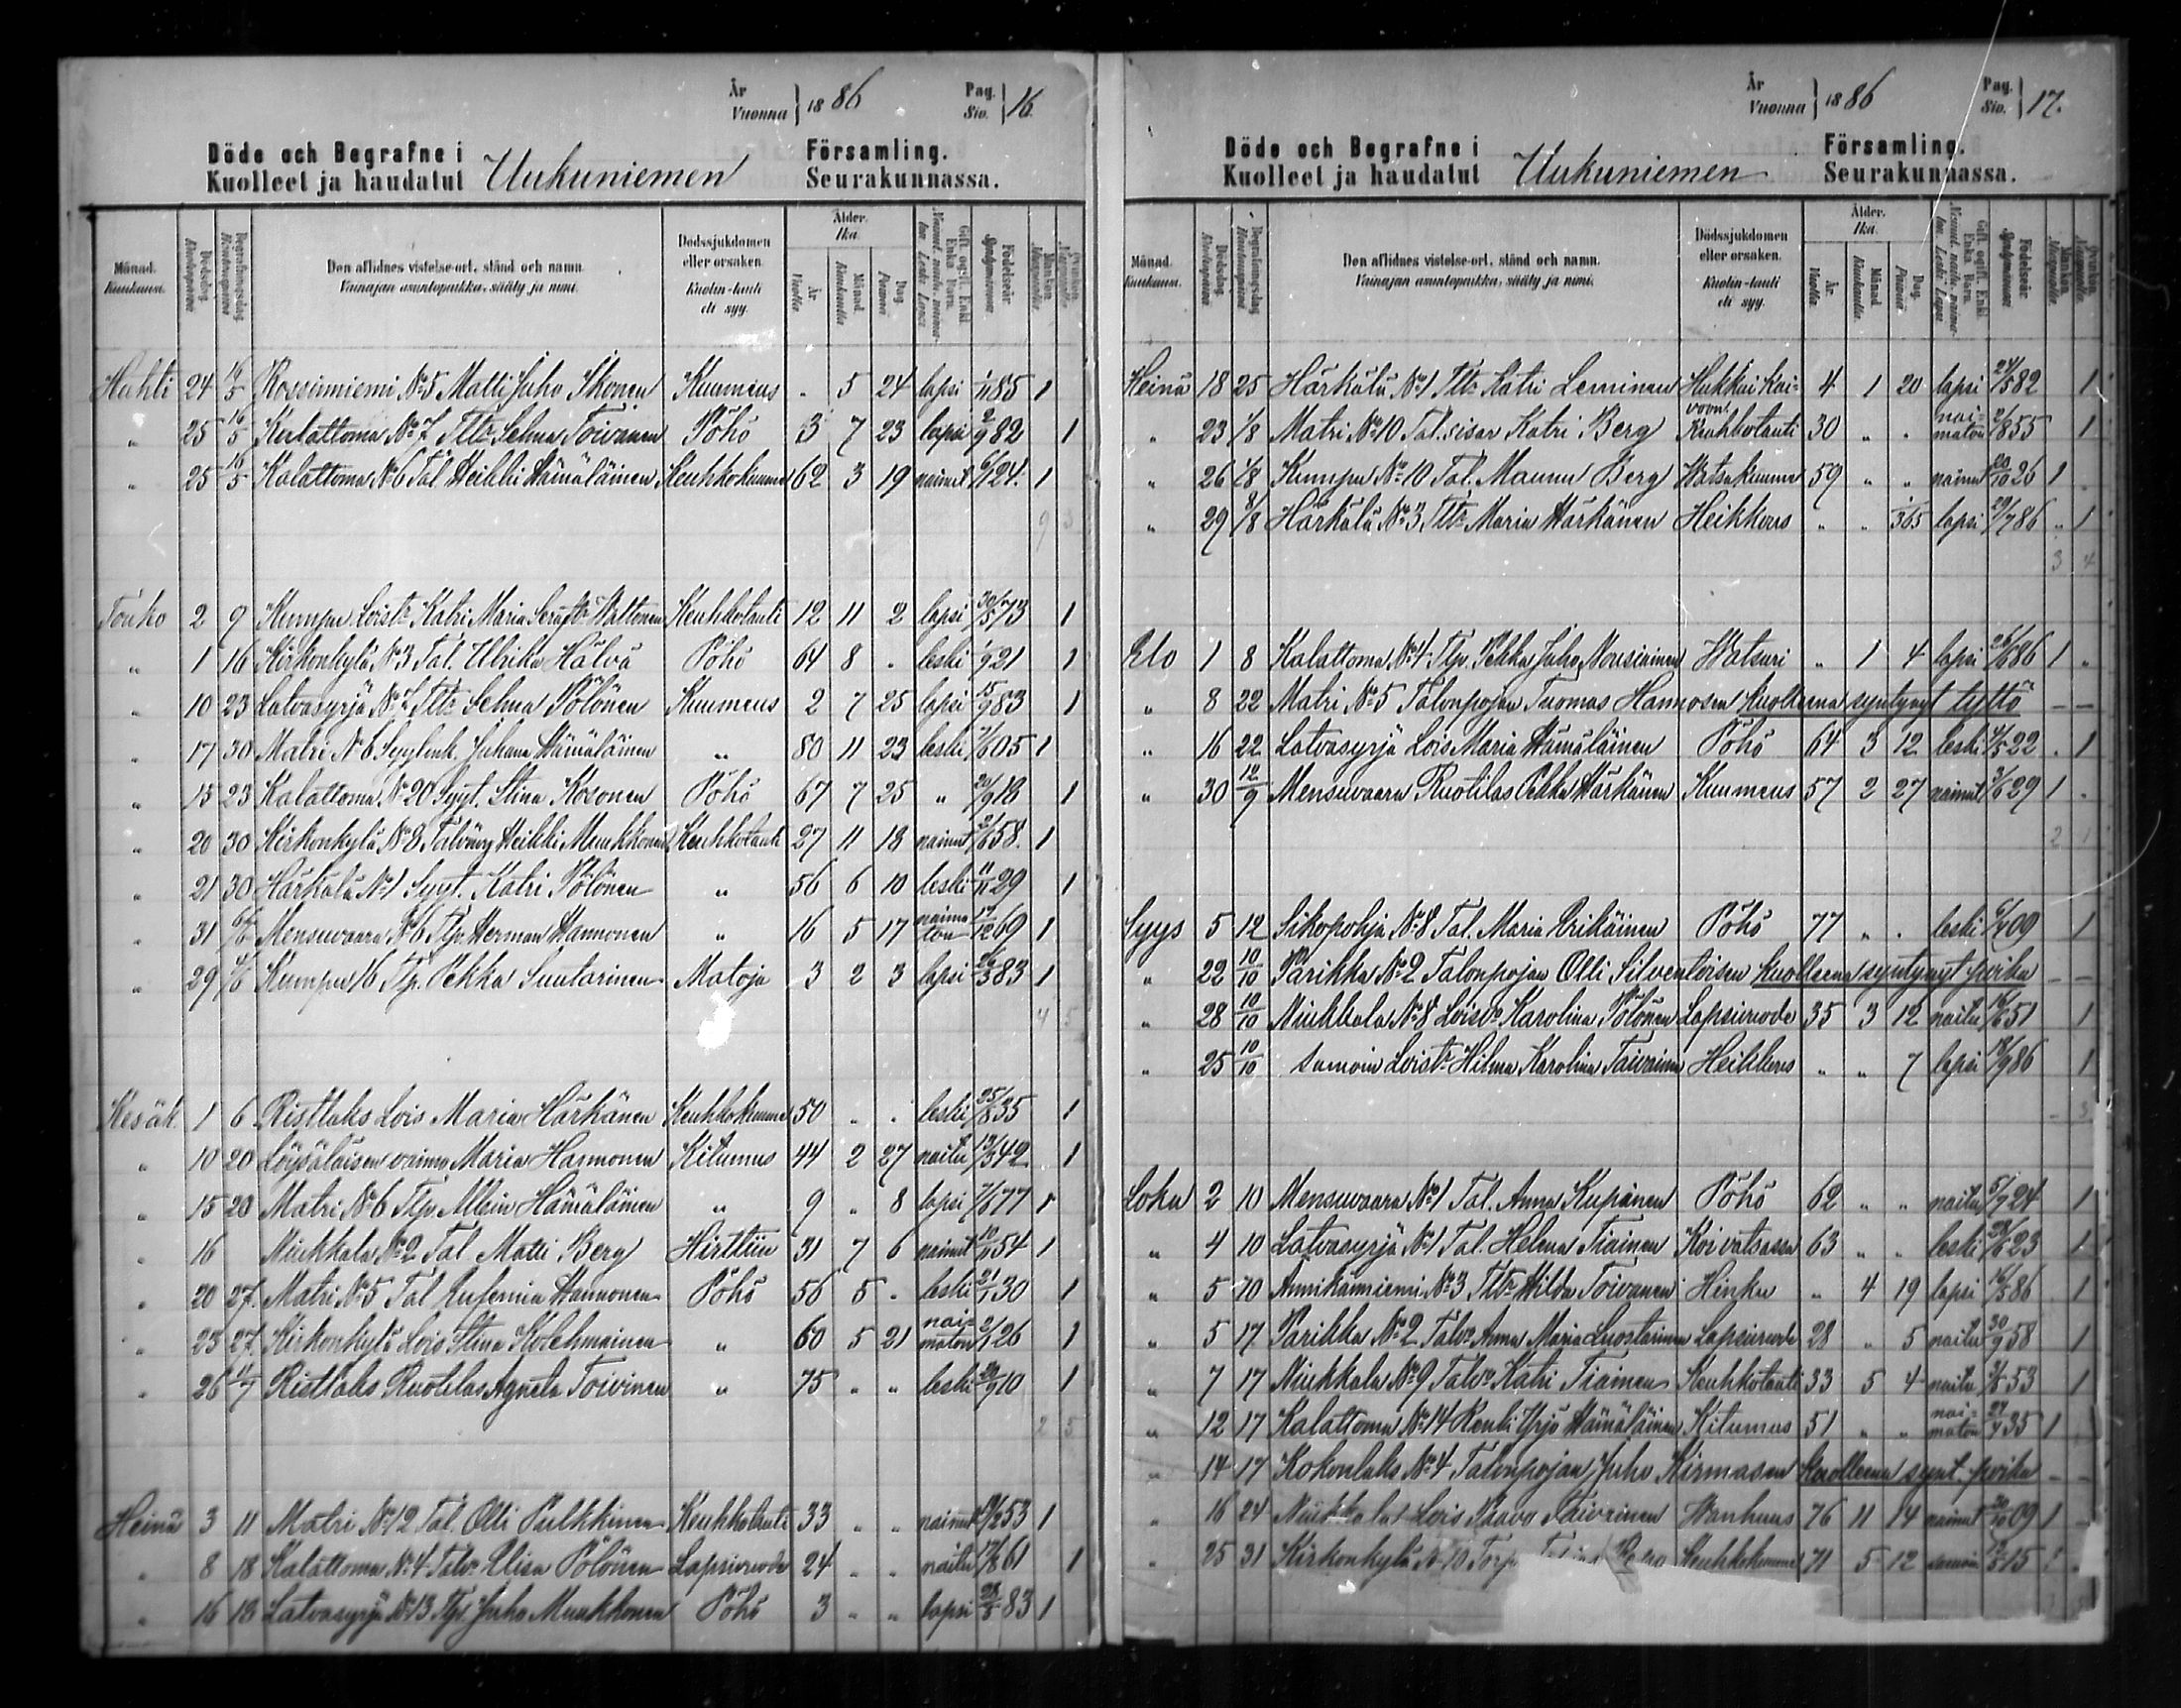 År
Vuonna } 1886
Pag.
Siv. } 16.
Döde och Begrafne i
Kuolleet ja haudatut Uukuniemen
Församling.
Seurakunnassa.
Månad.
Kuukausi.
Dödsdag.
Kuolinpäivä
Begrafningsdag.
Hautauspäivä
Den aflidnes vistelse-ort, stånd och namn.
Vainajan asuntopaikka, sääty ja nimi.
Dödssjukdomen eller orsaken.
Kuolin-tauti eli syy.
Ålder.
Ikä.
År
Vuotta
Månad.
Kuukautta
Dag.
Päivää
Gift, ogift, Enkl. Enka, Barn.
Födelseår
Mankön.
Qvinkön.
Huhti 24 16/5 Rossinniemi No 5 Matti Juho Ikonen Kuumeus . 5 24 lapsi 1/11 85 1
" 25 16/5 Kalattoma No 7 Ttr Selma Toivanen Pöhö 3 7 23 lapsi 2/9 82 1
" 25 16/5 Kalattoma No 6 Tal Heikki Hämäläinen Keuhkokuume 62 3 19 nainut 6/1 24. 1
9 3
Touko 2 9 Kumpu Loistr Katri Maria Valtonen Keuhkotauti 12 11 2 lapsi 30/5 73 1
" 1 16 Kirkonkylä No 3 Tal. Ulrika Hälvä Pöhö 64 8 . leski 1/9 21 1
" 10 23 Latvasyrjä No 7 Ttr Selma Pölönen Kuumeus 2 7 25 lapsi 15/9 83 1
" 17 30 Matri No 6 Juhana Hämäläinen " 80 11 23 leski 7/6 05 1
" 15 23 Kalattoma No 20 Syyt. Stina Kosonen Pöhö 67 7 25 " 20/9 18 1
" 20 30 Kirkonkylä No 8 Heikki Muukkonen Keuhkotauti 27 11 18 nainut 2/6 58. 1
" 21 30 Härkälä No 1 Syyt. Katri Pölönen " 56 6 10 leski 11/11 29 1
" 31 6/6 Mensuvaara No 6 Tlp. Herman Hannonen " 16 5 17 naimaton 14/12 69 1
" 29 6/6 Kumpu 16 Tlp. Pekka Suutarinen Matoja 3 2 3 lapsi 26/3 83 1
4 5
Kesäk 1 6 Ristlaks Lois Maria Härkänen Keuhkokuume 50 . . leski 25/8 35 1
" 10 20 Löysäläisen vaimo Maria Hannonen Kitumus 44 2 27 naitu 13/3 42 1
" 15 20 Matri No 6 Tlp. Albin Hämäläinen " 9 " 8 lapsi 7/6 77 1
" 16 Niukkala No 2 Tal Matti Berg Hirttiin 31 7 6 nainut 10/11 54 1
" 20 27. Matri No 5 Tal Eufemia Hannonen Pöhö 56 5 . leski 21/1 30 1
" 23 27. Kirkonkylä Lois Stina Kolehmainen " 60 5 21 naimaton 2/1 26 1
" 26 11/7 Ristlaks Ruotilas Agneta Toivinen " 75 " " leski 29/9 10 1
2 5
Heinä 3 11 Matri No 12 Tal. Olli Pulkkinen Keuhkotauti 33 " " nainut 53 1
" 8 18 Kalattoma No 4 Talv. Elisa Pölönen Lapsivuode 24 " " naitu 17/8 61 1
" 16 18 Latvasyrjä No 13 Tlp. Juho Muukkonen Pöhö 3 " " lapsi 28/5 83 1
År
Vuonna } 1886
Pag.
Siv. } 17.
Döde och Begrafne i
Kuolleet ja haudatut Uukuniemen
Församling.
Seurakunnassa.
Månad.
Kuukausi.
Dödsdag.
Kuolinpäivä
Begrafningsdag
Hautauspäivä
Den aflidnes vistelse-ort, stånd och namn.
Vainajan asuntopaikka, sääty ja nimi.
Dödssjukdomen eller orsaken.
Kuolin-tauti eli syy.
Ålder.
Ikä.
År.
Vuotta.
Månad.
Kuukautta.
Dag.
Päivää
Gift, ogift, Enkl. Enka, Barn.
Födelseår
Mankön.
Qvinkön.
Heinä 18 25 Härkälä No 1 Ttr Katri Leminen Hukkui Kaivoon! 4 1 20 lapsi 24/5 82 1
" 23 1/8 Matri No 10 Tal. sisar Katri Berg Keuhkotauti 30 " " naimaton 2/8 55 1
" 26 1/8 Kumpu No 10 Tal. Maunu Berg Watsakuume 59 " " nainut 20/10 26 1 .
" 29 8/8 Härkälä No 3 Ttr Maria Härkänen Heikkous " " 365 lapsi 29/7 86 " 1
3 4
Elo 1 8 Kalattoma No 4 Tlp. Pekka Juho Nousiainen Watsuri " 1 4 lapsi 26/6 86 1 "
" 8 22 Matri No 5 Talonpojan Tuomas Hannosen kuolleena syntynyt tyttö – –
" 16 22 Latvasyrjä Lois Maria Hämäläinen Pöhö 64 3 12 leski 4/5 22 . 1
" 30 12/9 Mensuvaara Ruotilas Pekka Härkänen Kuumeus 57 2 27 nainut 3/6 29 1 .
2 1
Syys 5 12 Sikopohja No 8 Tal. Maria Erikäinen Pöhö 77 " . leski 09 1
" 22 10/10 Parikka No 2 Talonpojan Olli Silvenloisen kuolleena syntynyt poika – –
" 28 10/10 Niukkala No 8 Loisv. Karolina Pölönen Lapsivuode 35 3 12 naitu 16/6 51 1
" 25 10/10 samoin Loistr Hilma Karolina Taivainen Heikkous " " 7 lapsi 18/9 86 1
– 3
Loka 2 10 Mensuvaara No 1 Tal. Anna Kupänen Pöhö 62 " " naitu 5/7 24 1
" 4 10 Latvasyrjä No 1 Tal. Helena Tiainen Koivatsassa 63 " " leski 28/6 23 1
" 5 10 Annikanniemi No 3 Ttr Hilda Toivanen Hinku " 4 19 lapsi 16/5 86 1
" 5 17 Parikka No 2 Talv. Anna Maria Luostarinen Lapsivuode 28 " 5 naitu 30/9 58 1
" 7 17 Niukkala No 9 Talv. Katri Tiainen Keuhkotauti 33 5 4 naitu 3/5 53 1
" 12 17 Kalattoma No 14 Renki Yrjö Hämäläinen Kitumus 51 " " naimaton 24/4 35 1
" 14 17 Kokonlaks No 4 Talonpojan Juho Kirmasen kuolleena synt. poika – –
" 16 24 Niukkala Lois Paavo Taivainen Wanhuus 76 11 14 nainut 09 1 –
" 25 31 Kirkonkylä No 10 Keuhkokuume 71 5 12 samoin 15